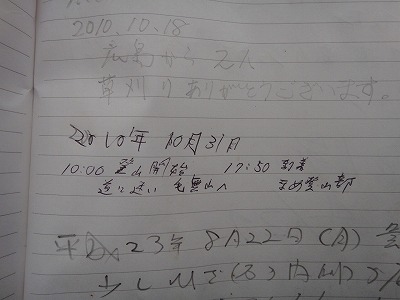 2010.10.18
広島から 2人
草刈りありがとうございます。
2010年 10月31日
10:00 登山開始 17:50 到着
道に迷い 毛無山へ まめ登山部
平成 23年 8月22日(月)
少し